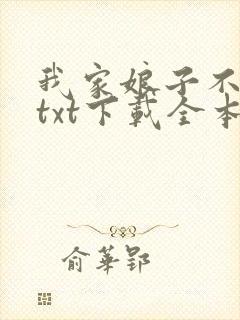 我家娘子不
txt下载全本
俞华郢